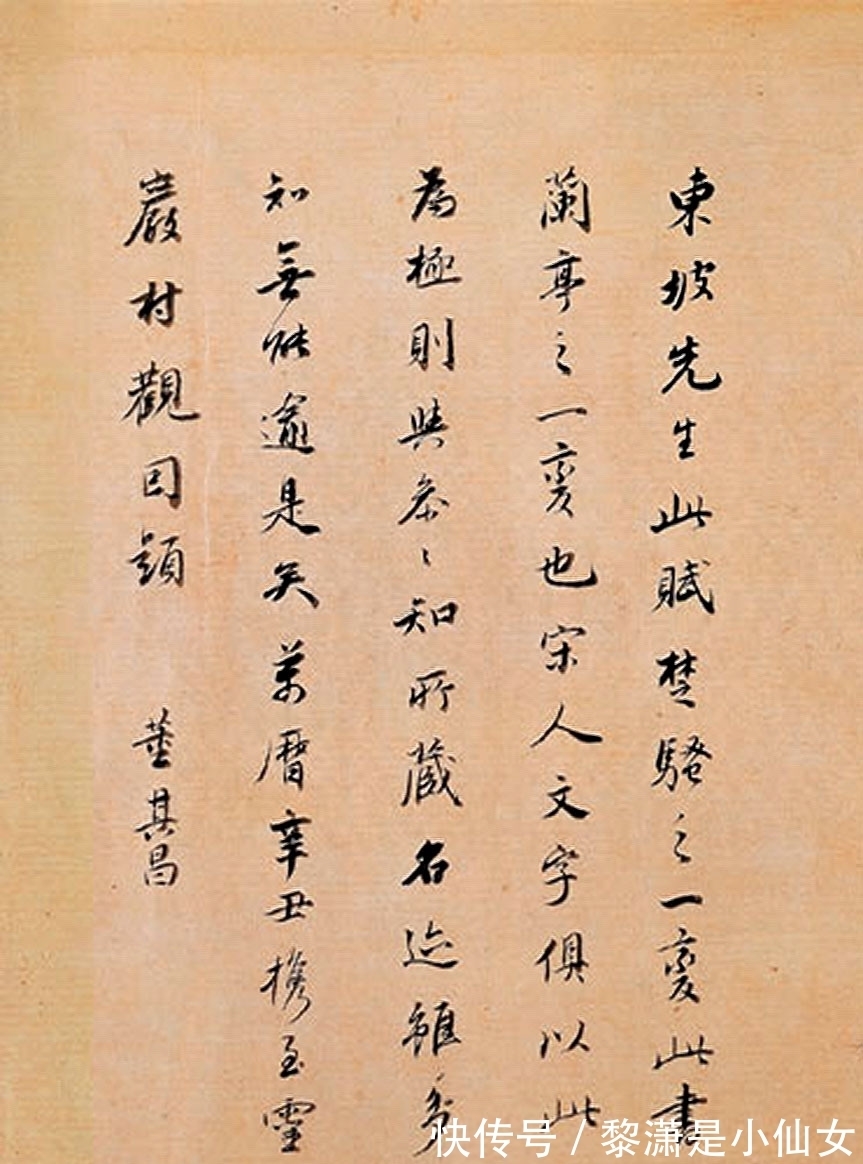 東坡先生此賦楚騷之一變此書
蘭亭之一變也宋人文字俱以此
為極則與參々知所藏名迹雖多
知無能逾是矣萬曆辛丑攜至靈
巖村觀因題
董其昌
快传号 / 黎潇是小仙女